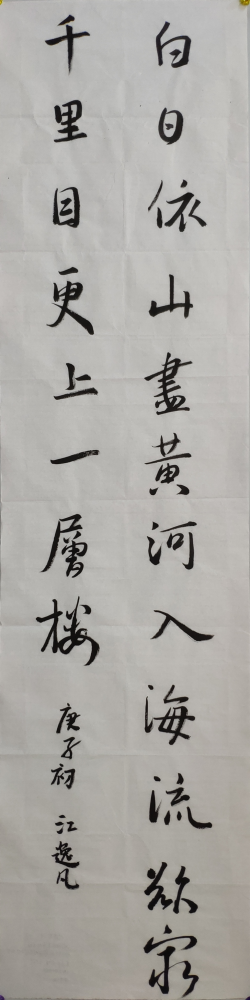 白日依山盡黃河入海流欲窮
千里目更上一層楼
庚子初 江逸凡